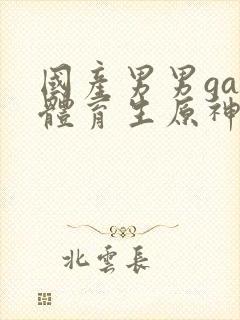 國產男男ga
體育生原神
北雲長